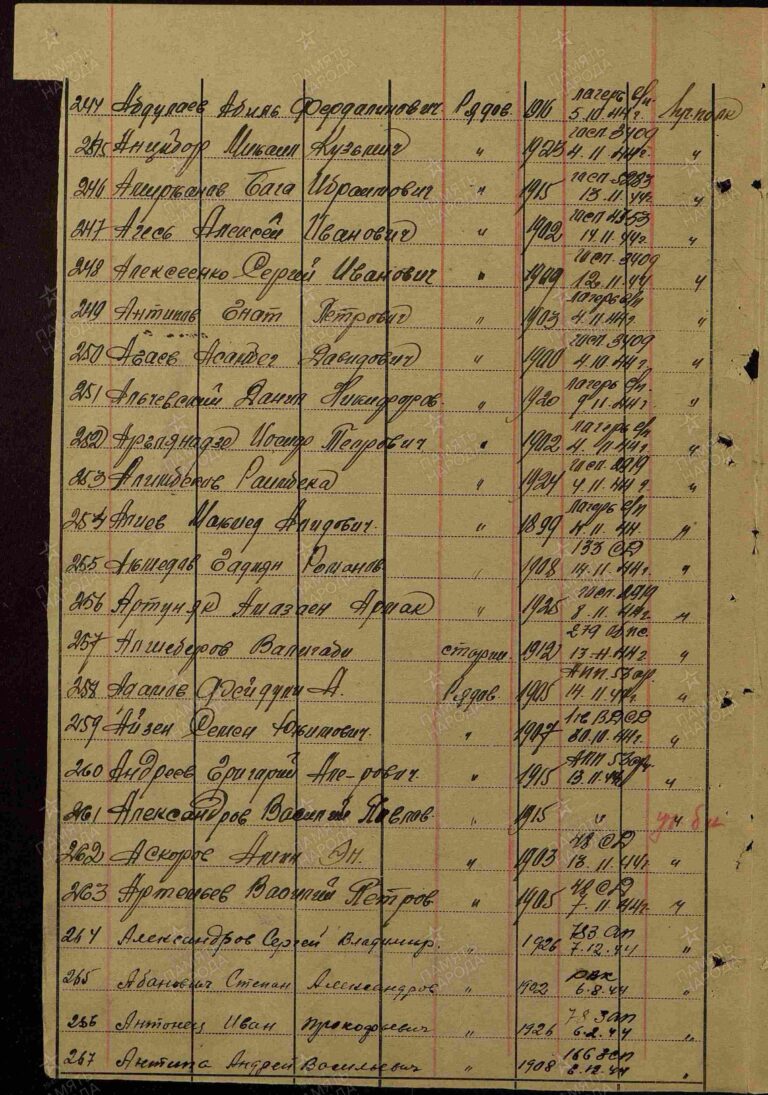 244 Абдулаев Абиль Фердалинович Рядов. 1916 лагерь б/н 5.10.44г. пр. полк
245 Анцибор Михаил Кузьмич " 1923 госп 3409 4.11.44г. "
246 Амирханав Бага Ибраимович " 1915 госп 5283 13.11.44г. "
247 Агесь Алексей Иванович " 1902 госп 4353 14.11.44г. "
248 Алексеенко Сергей Иванович " 1909 госп. 3409 12.11.44 "
249 Антипав Енат Петрович " 1903 лагерь б/н 4.11.44г "
250 Агаев Асамбег Давидович " 1900 госп. 3409 4.10.44г. "
251 Альчевский Данил Никифоров. " 1920 лагерь б/н. 9.11.44г "
252 Иосиф Петрович " 1902 лагерь б/н 4.11.44г "
253 Алимбеков Раимбека " 1924 госп. 2919 4.11.44г. "
254 Алиев Мамед Алидович " 1899 лагерь б/н 11.44 "
255 Ахмедов Романов " 1908 133 СД 14.11.44г. "
256 Артуняк Амазаен Армак " 1925 госп. 2919 8.11.44г. "
257 Алшеберов Валигаби старш. 1912 279 об. пс. 13.11.44г "
258 Адамов Фейдули А. Рядов 1905 АПП. 53 ар. 14.11.44г. "
259 Айзен Семен Юхимович. " 1907 1 гв ВДСД 30.10.44г. "
260 Андреев Григорий Але-рович " 1915 АПП. 53 ар. 13.11.44г "
261 Александров Василий Павлов. " 1915 " "
262 Аскоров Алим Эн. " 1903 48 СД 13.11.44г "
263 Артемьев Василий Петров " 1905 48 СД 7.11.44г. "
264 Александров Сергей Владимир. " 1926 783 ап 7.12.44 "
265 Абанович Степан Александров " 1922 рвк 6.8.44 "
266 Антонец Иван Прокофьевич " 1926 783 ап 6.2.44 "
267 Антипа Андрей Васильевич " 1908 166 зсп 6.12.44 "
ПАМЯТЬ НАРОДА